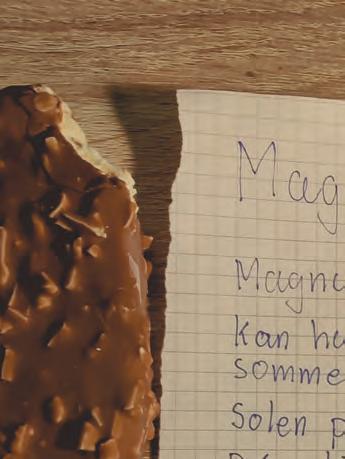 Mag
Magn
kan h
somme
Solen p